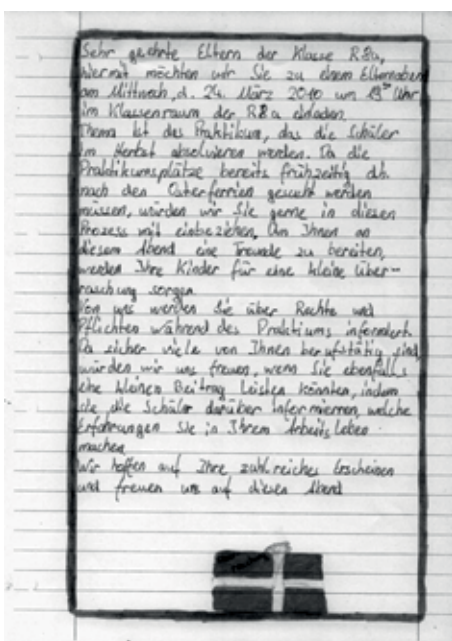 Sehr geehrte Eltern der Klasse R8a,
hiermit möchten wir Sie zu einem Elternabend
am Mittwoch, d. 24. März 2010 um Uhr
im Klassenraum der R8a einladen.
Thema ist das Praktikum, das die Schüler
im Herbst absolvieren werden. Da die
Praktikumsplätze bereits frühzeitig dh.
nach den Osterferrien gesucht werden
müssen, würden wir Sie gerne in diesen
Prozess mit einbeziehen. Um Ihnen an
diesem Abend eine Freunde zu bereiten,
werden Ihre Kinder für eine kleine Über-
raschung sorgen.
Von uns werden Sie über Rechte und
Pflichten während des Praktiums informiert.
Da sicher viele von Ihnen berufstätig sind,
würden wir uns freuen, wenn Sie ebenfalls
einen kleinen Beitrag leisten könnten, indem
sie die Schüler darüber informieren, welche
Erfahrungen Sie in Ihrem Arbeitsleben
machen.
Wir hoffen auf Ihre zahlreiches Erscheinen
und freuen uns auf diesen Abend